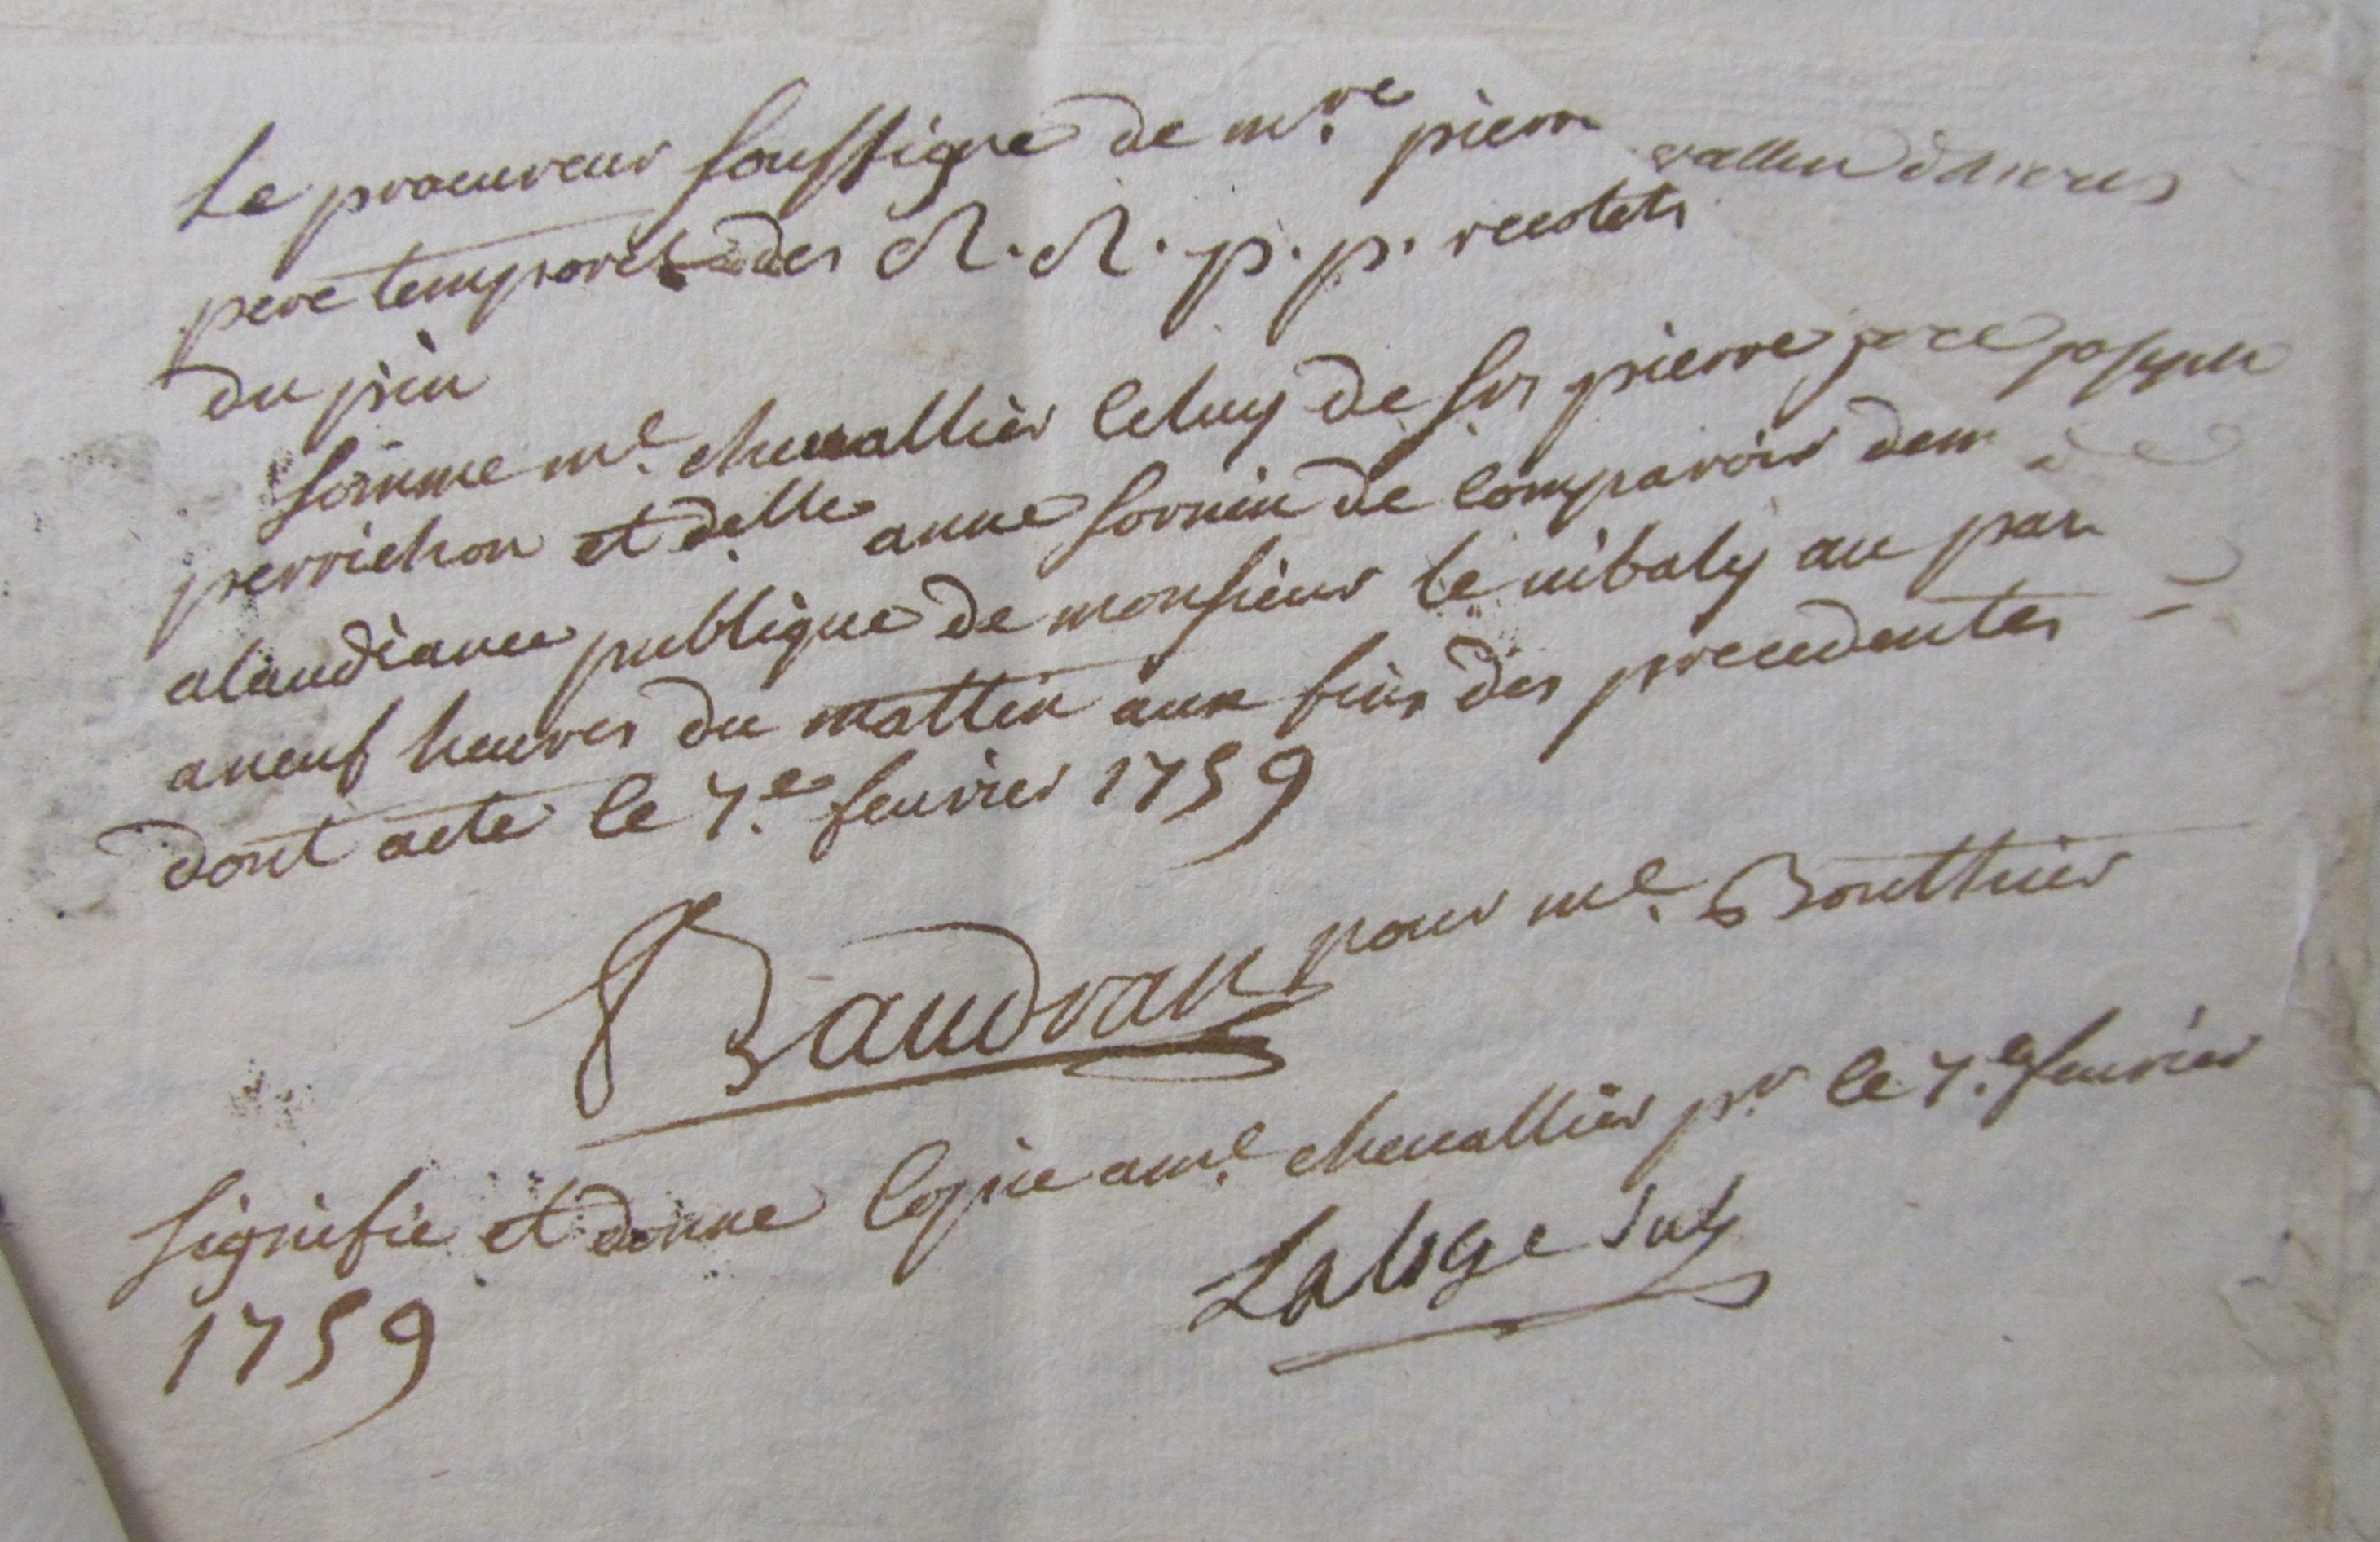 Le procureur soussigne de m.re pierre
pere temporel des R. R. p. p. recolets
du pin
somme me. chevallier celuy de srs pierre joseph
perrichon et delle anne sornin de comparoir
a laudiance publique de monsieur le vibaly au
a neuf heures du mattin aux fins des precedentes
dont acte le 7.e feuvrier 1759
Baudran pour me. Bouthier
signifie et donne copie a me. chevallier pr le 7.e feuvrier
1759